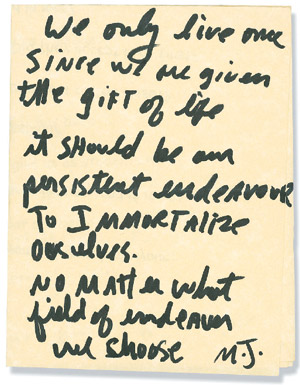 We only live once
SINCE we are given
the gift of life
it should be our
persistent endeavour
To Immortalize
ourselves.
NO MATTer what
field of endeavor
we choose M.J.